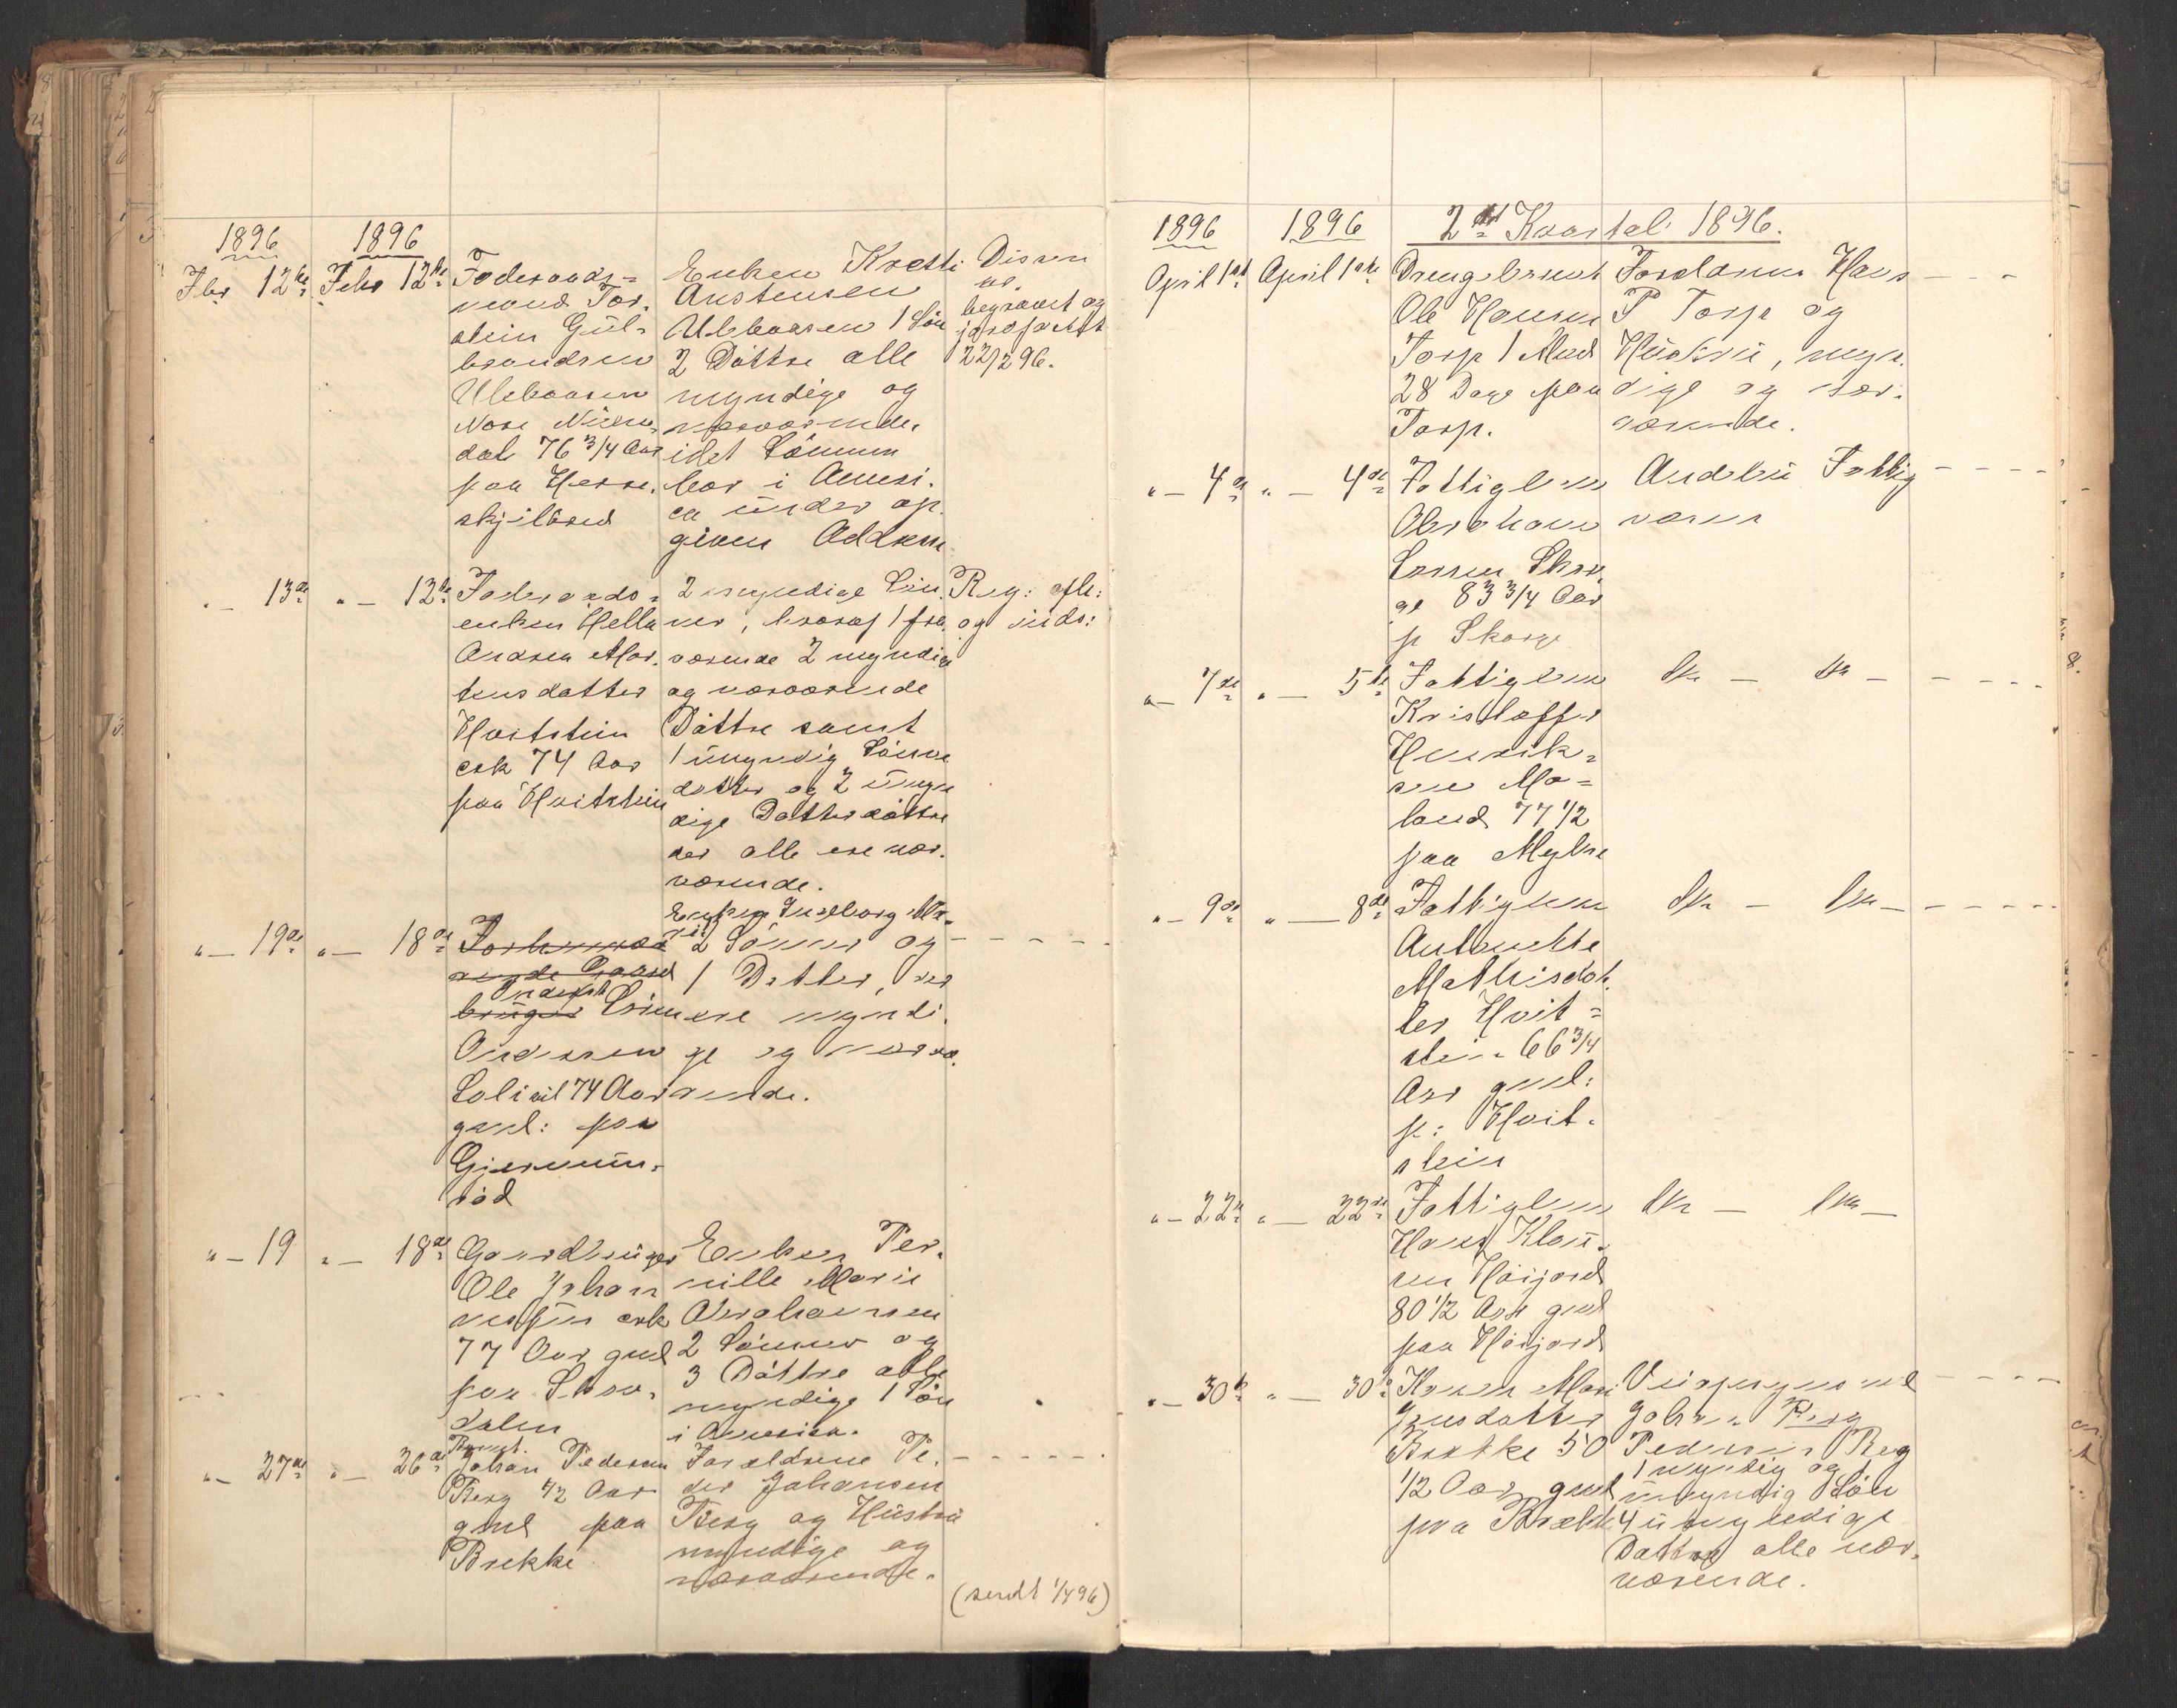 1896
1896
Fbr 12te
Febr 12te
Foderaads=
mand Tor.
stein Gul=
brandsen
Ulebaasen
Nore Nüme
dal 76 3/4 Aar
paa Hesse.
skjilbred
Enken Kretti
Anstensen
Ulebaasen 1 Sön
2 Döttre alle
myndige og
nærværende.
idet Sönnen
bor i Ameri.
ca under op
given Adresse
begravet og
22/2 96.
„ — 13de
„ — 12te
Foderaads=
enken Hella
Andrea Mor.
tensdatter
Hvitstein
crk 74 Aar
paa Hvitstein
2 myndige Sön
ner, hvoraf 1 fra
værende 2 myndige
og nærværende
Döttre samt
1 umyndig Sönne
datter og 2 umyn
dige Datterdöttre
der alle ere nær.
værende.
Reg: afh:
og inds:
„ — 19de
„ — 18de
Inderst
Andersen
Soli vil 74 Aar
gml: paa
röd
Enken Ingeborg
2 Sönner og
1 Datter, der
ere myndi.
ge og nærvæ.
rende.
„ — 19
„ — 18de
Gaardbruger
Ole Johan
crk
77 Aar gml
paa
dalen
Enken Per.
nille Marie
Abrahamsen
2 Sönner og
3 Döttre alle
myndige 1 Sön
i America.
„ — 27de
„ — 26de
Barnet.
Johan Pedersen
Berg 1/2 Aar
gml paa
Brekke
Forældrene Pe.
der Johansen
Berg og Hüstrü
myndige og
nærværende.
(sendt 1/4 96)
1896
1896
2det Kvartal 1896.
April 1ste
April 1ste
Drengebarnet
Ole Hansen
Torp 1 Mnd
28 Dage paa
Torp.
Forældrene Hans
P Torp og
Hüstrü, myn.
dige og nær.
værende.
„ — 4de
„ — 4de
Fattiglem
Abraham
Larsen Skor,
ge 83 3/4 Aar
p Skorge
Andebü Fattig
væsen
„ — 7de
„ — 5te
Fattiglem
Kristoffer
Henrik=
sen Mo=
land 77 1/2
paa Myhre
do — do
„ — 9de
„ — 8de
Fattiglem
Antonette
Mathisdat.
ter Hvit=
stein 66 3/4
Aar gml:
p: Hvit.
stein
do — do
„ — 22de
„ — 22de
Fattiglem
Hans Klau.
sen Höijord
80 1/2 Aar gml
paa Höijord
do — do
„ — 30te
„ — 30te
Karen Mari
Jensdatter
Brekke 50
1/2 Aar gml
paa Brekke
Pedersen
1 myndig og 1
umyndig Sön
4 umyndige
Döttre alle nær.
værende.